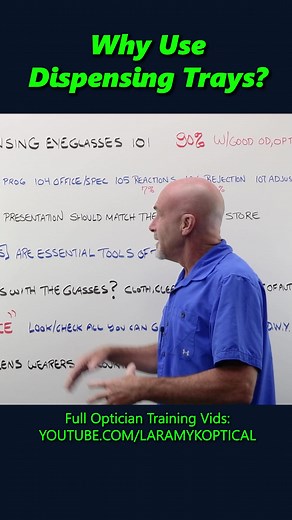 Why Use
Dispensing Trays?
NSING EYEGLASSES 101 90% W/GOOD OD, OPT
PROG 104 OFFICE/SPEC 105 REACTIONS REJECTION 107 ADJUS
7% %
PRESENTATION SHOULD MATCH THE STORE
ARE ESSENTIAL TOOLS OF
S WITH THE GLASSES? CLOTH, CLE OF AUT
CE" LOOK/CHECK ALL YOU CAN D.W.Y
ENS WEARERS
Full Optician Training Vids:
YOUTUBE.COM/LARAMYKOPTICAL